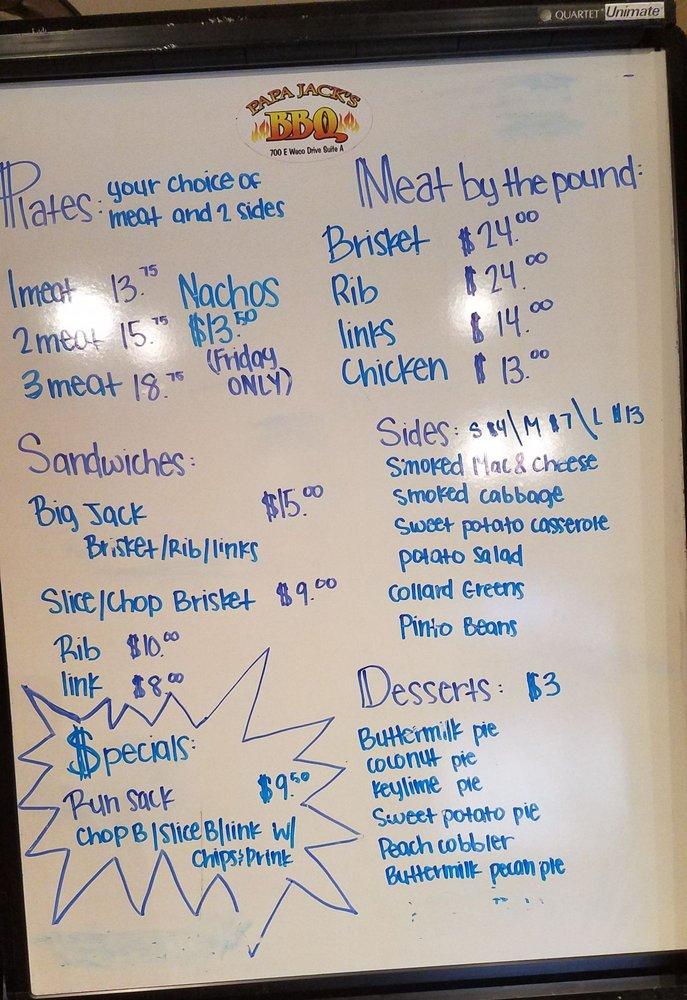 QUARTET Unimate
PAPA JACK'S
BBQ
700 E Waco Drive Suite A
Plates: your choice of
meat and 2 sides
1 meat 13.75
2 meat 15.75
3 meat 18.75
Nachos
$13.50
(Friday
ONLY)
Sandwiches:
Big Jack $15.00
Brisket/Rib/links
Slice/Chop Brisket $9.00
Rib $10.00
link $8.00
$pecials:
Run sack $9.50
Chop B/Slice B/link w/
Chips & Drink
Meat by the pound:
Brisket $24.00
Rib $24.00
links $14.00
Chicken $13.00
Sides: S $4\ M $7\ L $13
Smoked Mac & Cheese
Smoked cabbage
Sweet potato casserole
potato Salad
Collard Greens
Pinto Beans
Desserts: $3
Buttermilk pie
coconut pie
Keylime pie
Sweet potato pie
Peach cobbler
Buttermilk pecan pie